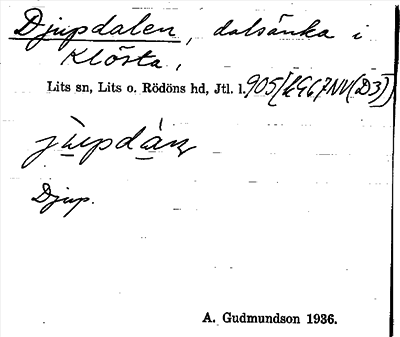 Djupdalen, dalsänka i
Klösta,
Lits sn, Lits o. Rödöns hd, Jtl. l. 905
Djup.
A. Gudmundson 1936.